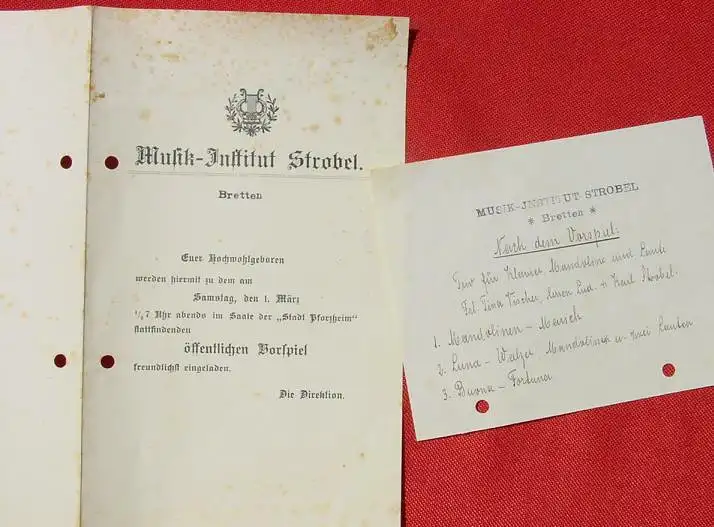 Musik-Institut Strobel.
Bretten
Euer Hochwohlgeboren
werden hiermit zu dem am
Samstag, den 1. März
1/27 Uhr abends im Saale der „Stadt Pforzheim“
stattfindenden
öffentlichen Vorspiel
freundlichst eingeladen.
Die Direktion.
MUSIK-JNSTITUT STROBEL
* Bretten *
Nach dem Vorspiel:
für Klavier, Mandoline und Laute
Frl. Lina Herren Lud. u. Karl Strobel.
1. Mandolinen - Marsch
2. Luna - Walzer Mandolinen u. zwei Lauten
3. Buona - Fortuna